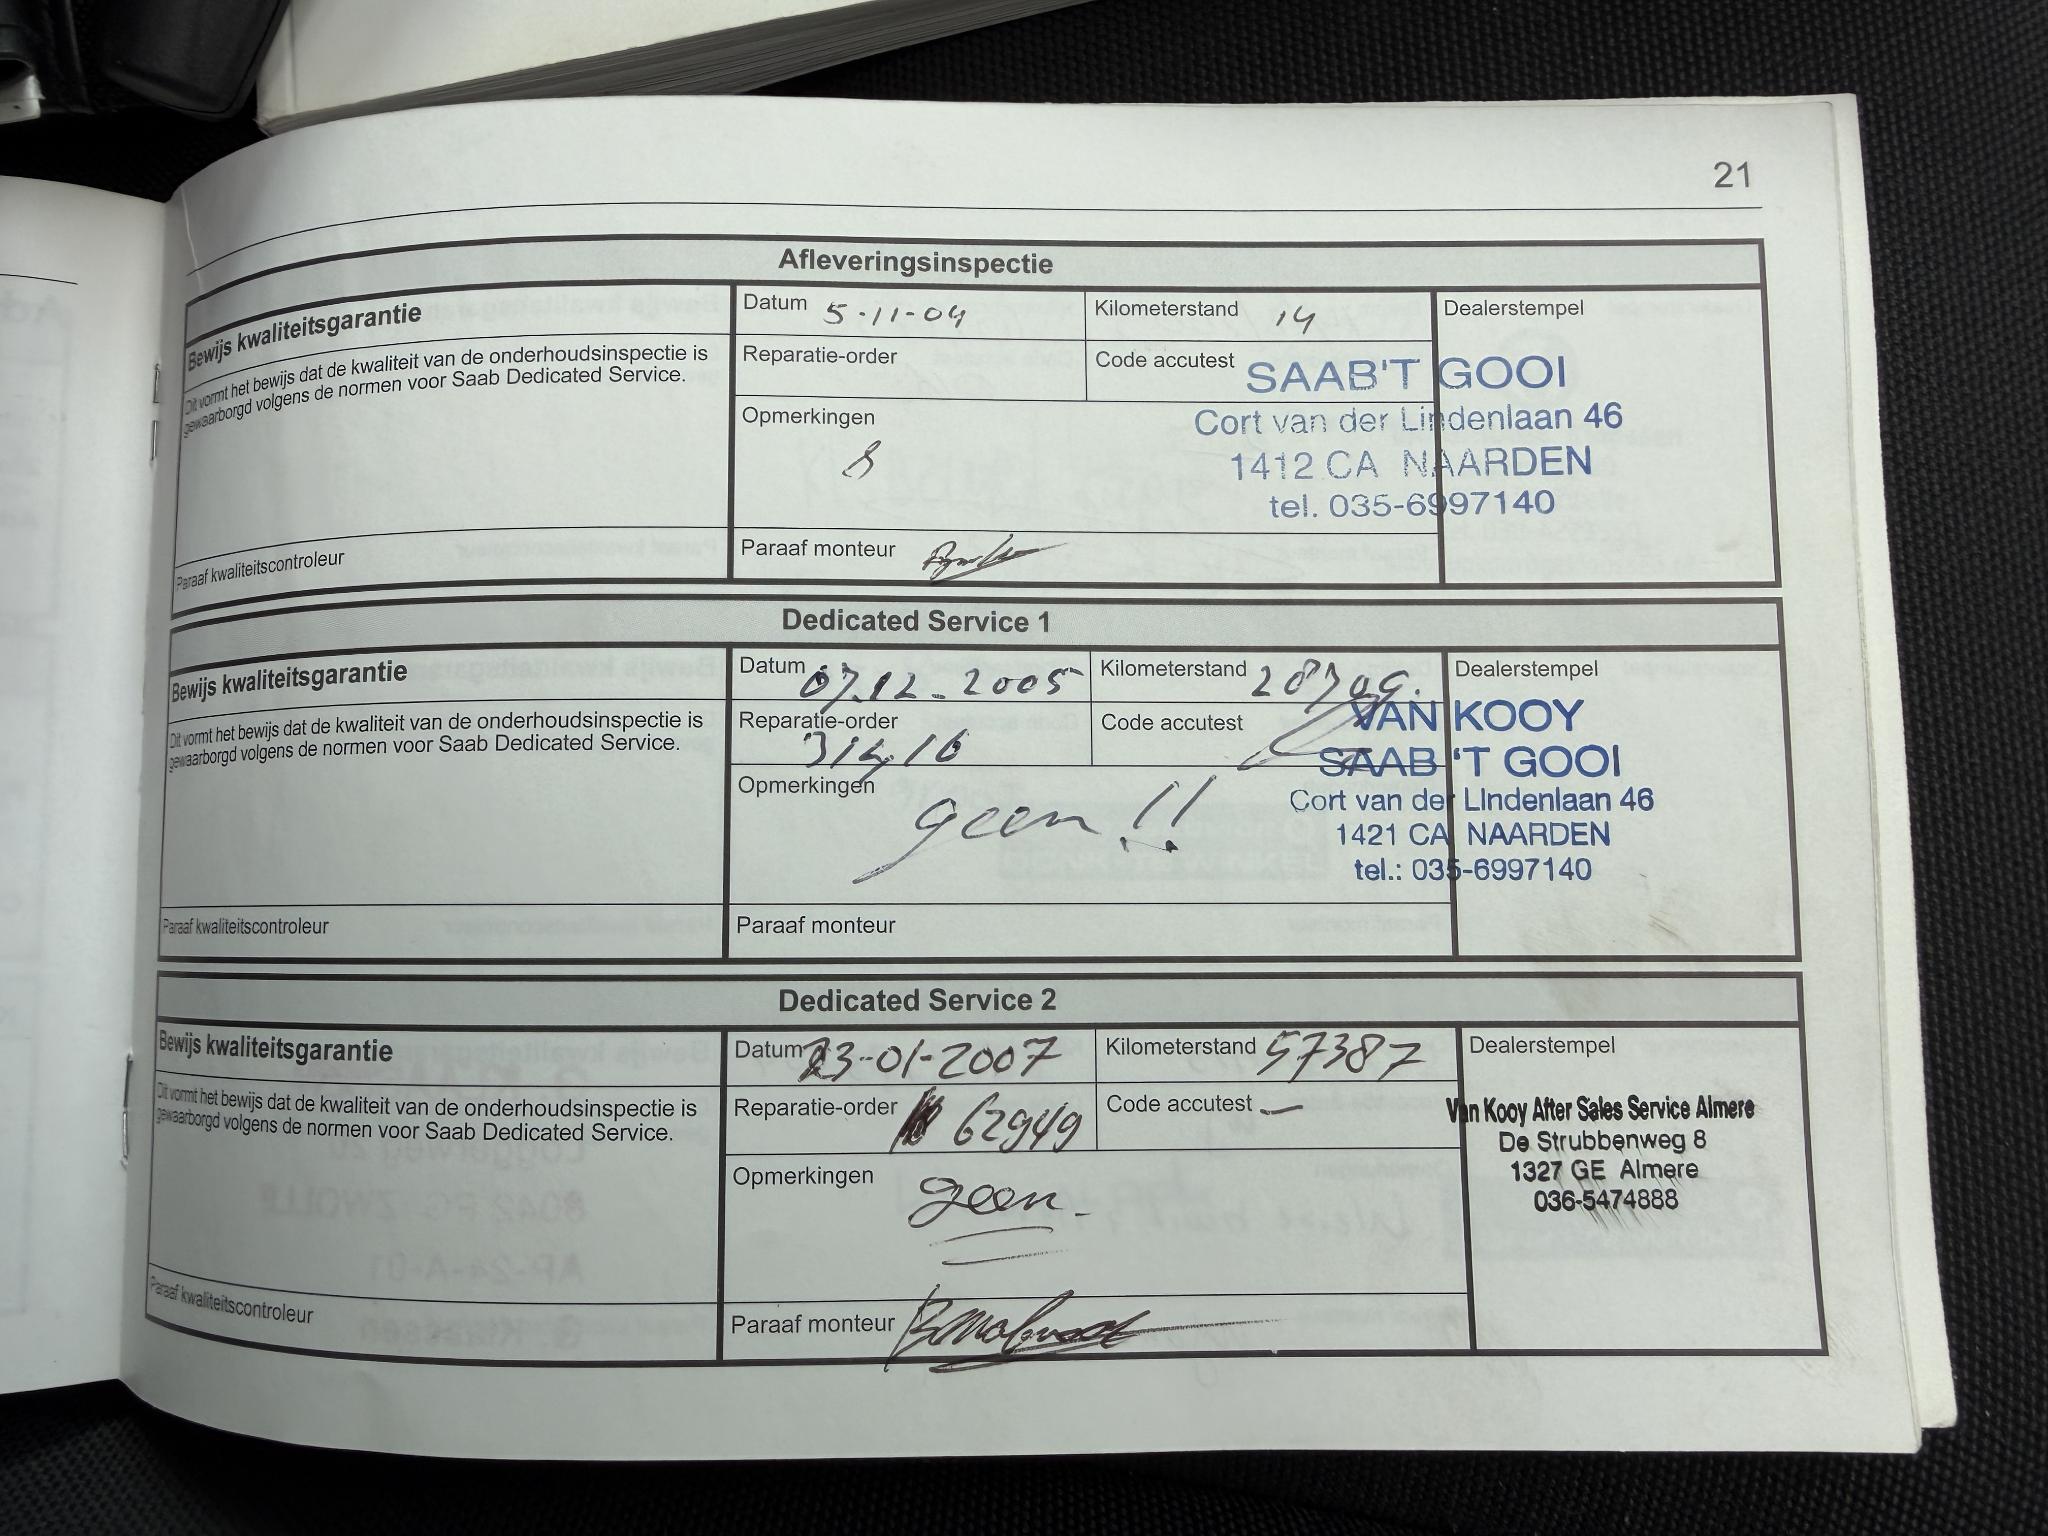 21
Afleveringsinspectie
Bewijs kwaliteitsgarantie
Dit vormt het bewijs dat de kwaliteit van de onderhoudsinspectie is
gewaarborgd volgens de normen voor Saab Dedicated Service.
Paraaf kwaliteitscontroleur
Datum 5-11-04
Kilometerstand 14
Reparatie-order
Code accutest
Opmerkingen
Paraaf monteur
Dealerstempel
SAAB'T GOOI
Cort van der Lindenlaan 46
1412 CA NAARDEN
tel. 035-6997140
Dedicated Service 1
Bewijs kwaliteitsgarantie
Dit vormt het bewijs dat de kwaliteit van de onderhoudsinspectie is
gewaarborgd volgens de normen voor Saab Dedicated Service.
Paraaf kwaliteitscontroleur
Datum 07.12-2005
Kilometerstand
Reparatie-order
Code accutest
Opmerkingen
geen !!
Paraaf monteur
Dealerstempel
VAN KOOY
SAAB 'T GOOI
Cort van der LIndenlaan 46
1421 CA NAARDEN
tel.: 035-6997140
Dedicated Service 2
Bewijs kwaliteitsgarantie
Dit vormt het bewijs dat de kwaliteit van de onderhoudsinspectie is
gewaarborgd volgens de normen voor Saab Dedicated Service.
Paraaf kwaliteitscontroleur
Datum 23-01-2007
Kilometerstand 57387
Reparatie-order 62949
Code accutest —
Opmerkingen
geen.
Paraaf monteur
Dealerstempel
Van Kooy After Sales Service Almere
De Strubbenweg 8
1327 GE Almere
036-5474888